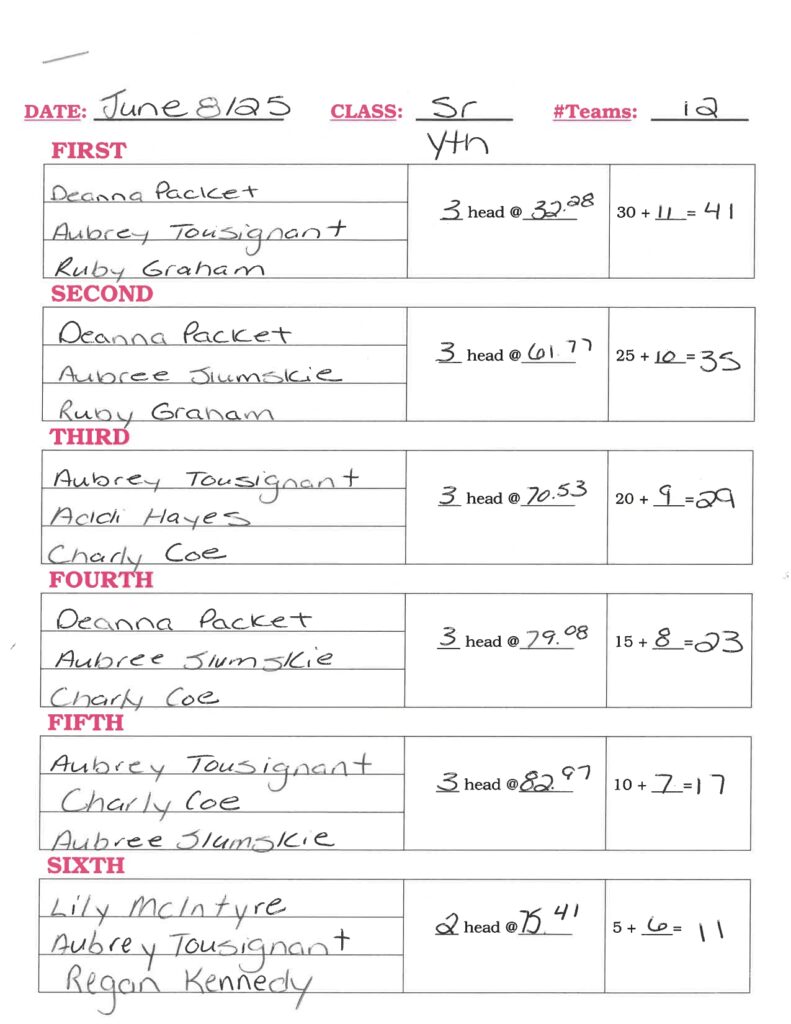 DATE: June 8/25 CLASS: Sr Yth #Teams: 12
FIRST
Deanna Packet
Aubrey Tousignant
Ruby Graham
3 head @ 32.28
30 + 11 = 41
SECOND
Deanna Packet
Aubree Slumskie
Ruby Graham
3 head @ 61.77
25 + 10 = 35
THIRD
Aubrey Tousignant
Addi Hayes
Charly Coe
3 head @ 70.53
20 + 9 = 29
FOURTH
Deanna Packet
Aubree Slumskie
Charly Coe
3 head @ 79.08
15 + 8 = 23
FIFTH
Aubrey Tousignant
Charly Coe
Aubree Slumskie
3 head @ 82.97
10 + 7 = 17
SIXTH
Lily McIntyre
Aubrey Tousignant
Regan Kennedy
2 head @ 75.41
5 + 6 = 11